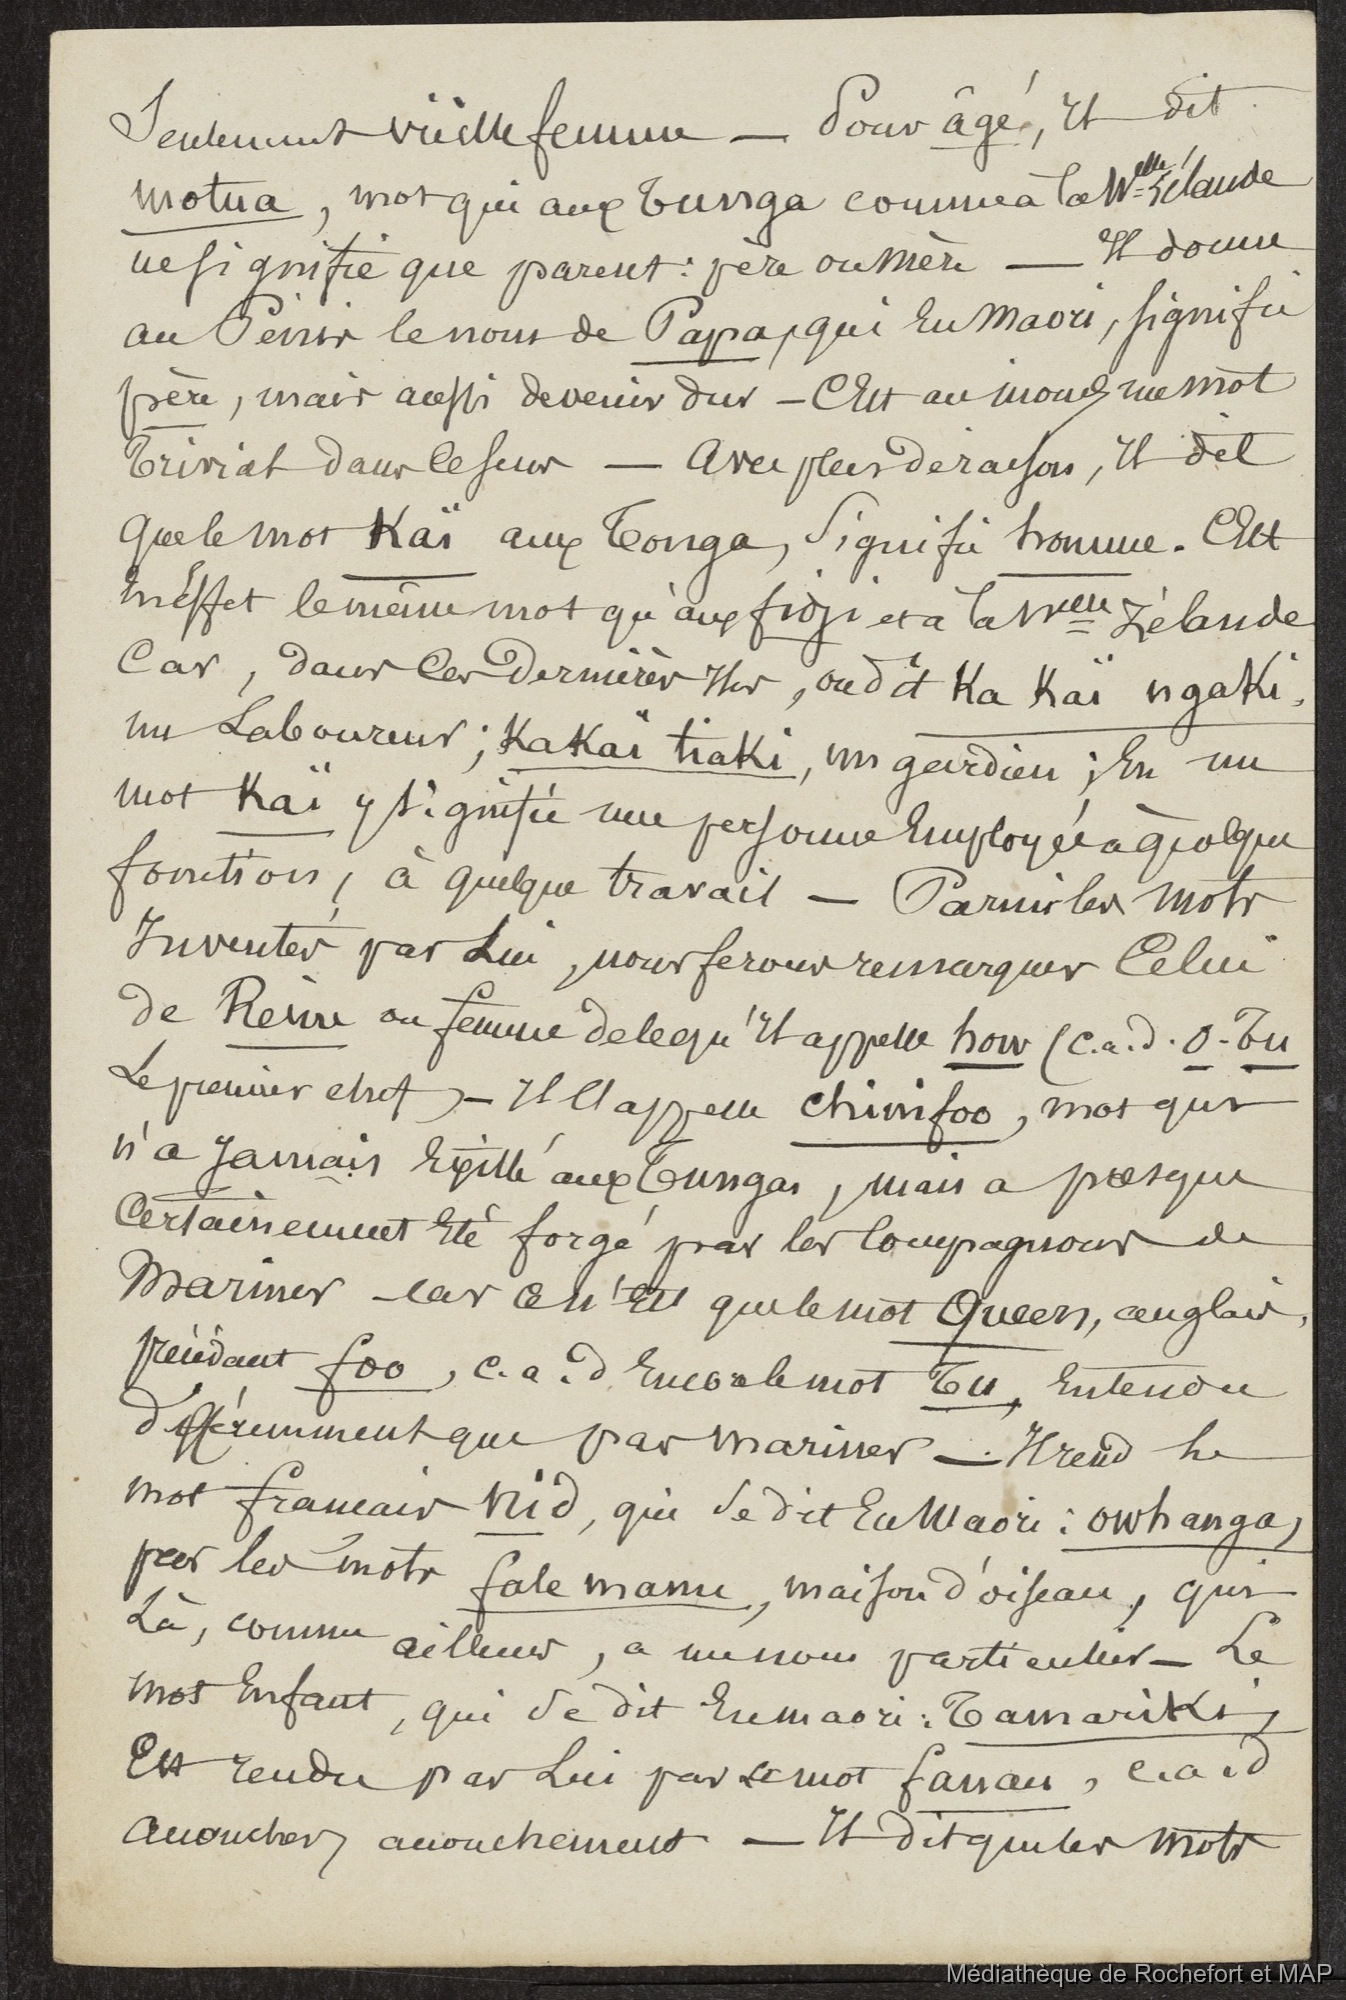 Seulement vieille femme — Pour âgé, Il dit
motua, mot qui aux Tunga comme à la Nelle Zélande
ne signifie que parent : père ou mère — Il donne
au Pénis le nom de Papa, qui En Maori, signifie
père, mais aussi devenir dur — C'Est au moins un mot
Trivial dans ce sens — Avec plus de raison, Il dit
que le mot Kaï aux Tonga, signifie homme. C'Est
En Effet le même mot qu'aux fidji et à la Nelle Zélande
Car, dans ces Dernières Iles, on dit Ka Kaï ngaki,
un Laboureur ; KaKaï tiaki, un gardien ; En un
mot Kaï y signifie une personne Employée à quelque
fonction, à quelque travail — Parmi les mots
Inventés par Lui, nous ferons remarquer Celui
de Reine ou femme de le qu'Il appelle how (c.a.d. O-Tu
Le premier chef) — Il l'appelle chinifoo, mot qui
n'a Jamais Existé aux Tungas, mais a presque
Certainement Eté forgé par les Compagnons de
Mariner — car ce n'Est que le mot Queen, anglais,
précédant foo, c.a.d Encore le mot Tu, Entendu
différemment que par Mariner — Il rend le
mot francais Nid, qui se dit En Maori : owhanga,
par les mots fale manu, maison d'oiseau, qui
Là, comme ailleurs, a un nom particulier — Le
mot Enfant, qui se dit En maori : Tamariki,
Est rendu par Lui par le mot fanau, c.a.d
accoucher, accouchement — Il dit que les mots
Médiathèque de Rochefort et MAP